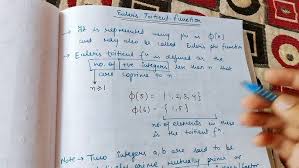 Euler's Totient Function
→ It is represented using phi as φ(n)
and may also be called Euler's phi function
→ Euler's totient is defined as the
no. of +ve integers less than n that
are coprime to n
n≥1
φ(5) = {1, 2, 3, 4}
φ(6) = {1, 5}
no. of elements in this
is the totient fⁿ
Note → Two integers a, b are said to be
relatively prime, mutually prime or